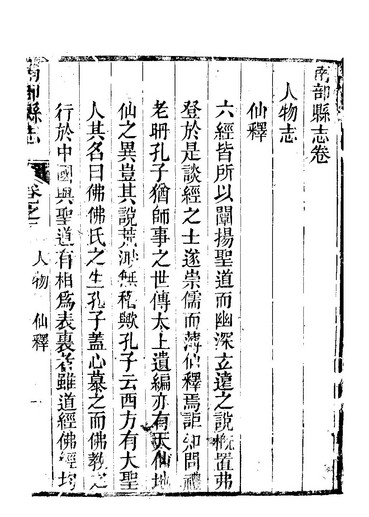 南部縣志卷
人物志
仙釋
六經皆所以闡揚聖道而幽深玄遠之說概置弗
登於是談經之士遂崇儒而薄仙釋焉詎知問禮
老聃孔子猶師事之世傳太上遺編亦有天仙地
仙之異豈其說荒渺無稽歟孔子云西方有大聖
人其名曰佛佛氏之生孔子蓋心慕之而佛教之
行於中國與聖道有相為表裏者雖道經佛經均
南部縣志
卷之
人物 仙釋
一